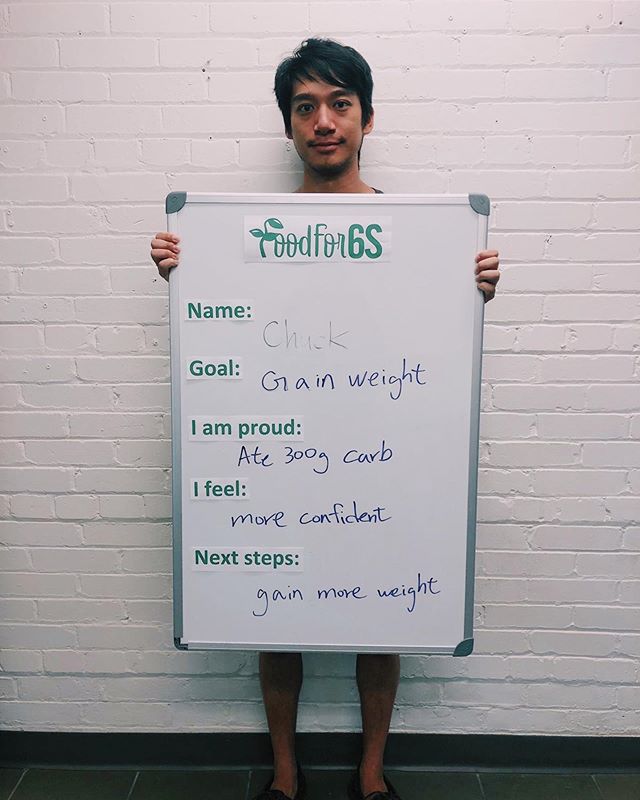 FoodFor6S
Name:
Chuck
Goal:
Gain weight
I am proud:
Ate 300g carb
I feel:
more confident
Next steps:
gain more weight